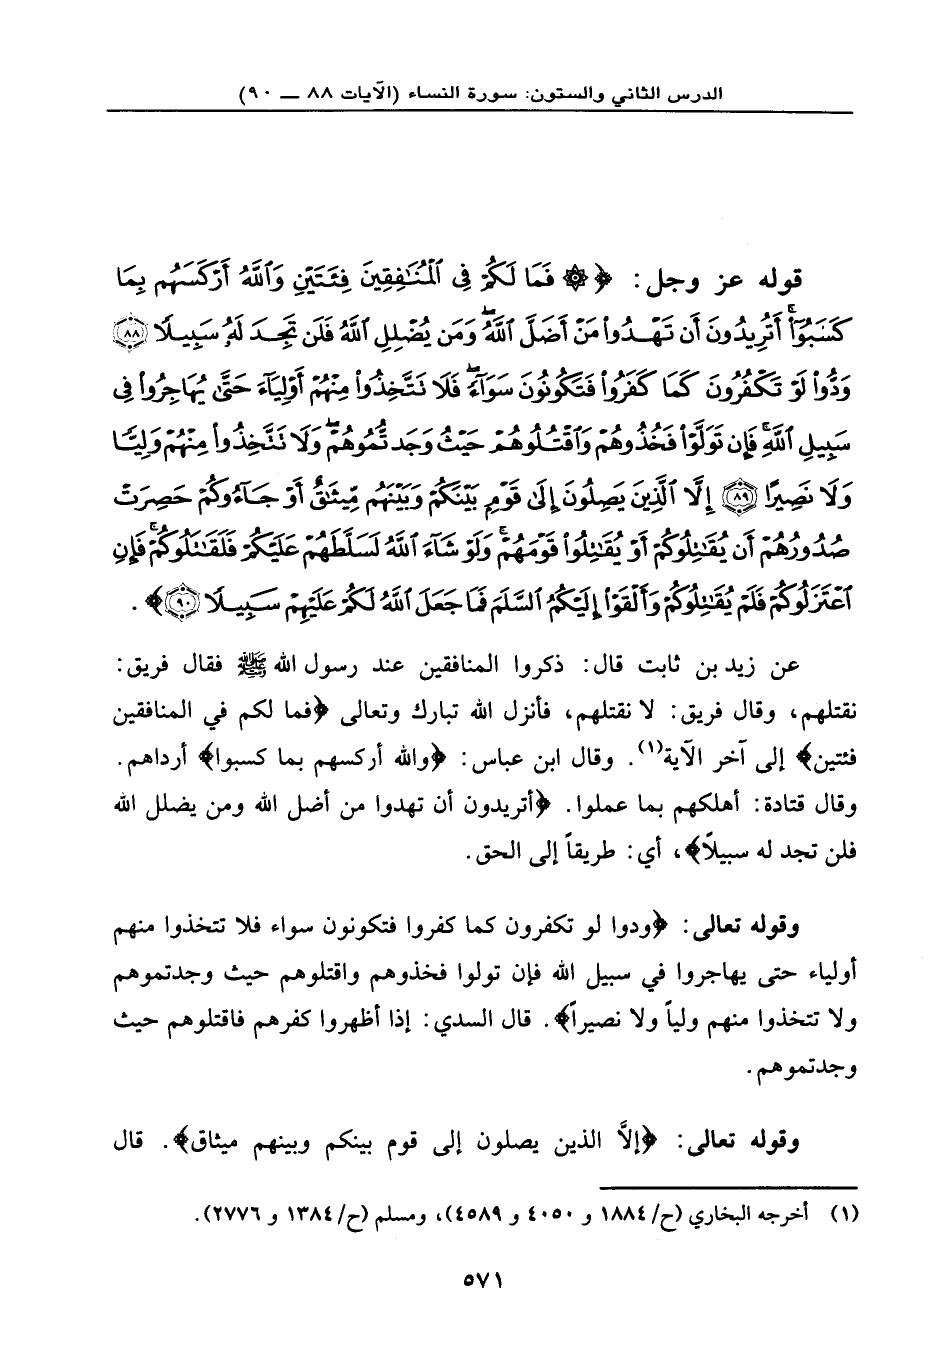 الدرس الثاني والستون: سورة النساء (الآيات ٨٨ ــ ٩٠)
قوله عز وجل: ﴿۞ فَمَا لَكُمْ فِي ٱلْمُنَٰفِقِينَ فِئَتَيْنِ وَٱللَّهُ أَرْكَسَهُم بِمَا
كَسَبُوٓا۟ ۚ أَتُرِيدُونَ أَن تَهْدُوا۟ مَنْ أَضَلَّ ٱللَّهُ ۖ وَمَن يُضْلِلِ ٱللَّهُ فَلَن تَجِدَ لَهُۥ سَبِيلًا ٨٨
وَدُّوا۟ لَوْ تَكْفُرُونَ كَمَا كَفَرُوا۟ فَتَكُونُونَ سَوَآءً ۖ فَلَا تَتَّخِذُوا۟ مِنْهُمْ أَوْلِيَآءَ حَتَّىٰ يُهَاجِرُوا۟ فِي
سَبِيلِ ٱللَّهِ ۚ فَإِن تَوَلَّوْا۟ فَخُذُوهُمْ وَٱقْتُلُوهُمْ حَيْثُ وَجَدتُّمُوهُمْ ۖ وَلَا تَتَّخِذُوا۟ مِنْهُمْ وَلِيًّا
وَلَا نَصِيرًا ٨٩ إِلَّا ٱلَّذِينَ يَصِلُونَ إِلَىٰ قَوْمٍۭ بَيْنَكُمْ وَبَيْنَهُم مِّيثَٰقٌ أَوْ جَآءُوكُمْ حَصِرَتْ
صُدُورُهُمْ أَن يُقَٰتِلُوكُمْ أَوْ يُقَٰتِلُوا۟ قَوْمَهُمْ ۚ وَلَوْ شَآءَ ٱللَّهُ لَسَلَّطَهُمْ عَلَيْكُمْ فَلَقَٰتَلُوكُمْ ۚ فَإِنِ
ٱعْتَزَلُوكُمْ فَلَمْ يُقَٰتِلُوكُمْ وَأَلْقَوْا۟ إِلَيْكُمُ ٱلسَّلَمَ فَمَا جَعَلَ ٱللَّهُ لَكُمْ عَلَيْهِمْ سَبِيلًا ٩٠﴾ .
عن زيد بن ثابت قال: ذكروا المنافقين عند رسول الله ﷺ فقال فريق:
نقتلهم، وقال فريق: لا نقتلهم، فأنزل الله تبارك وتعالى ﴿فما لكم في المنافقين
فئتين﴾ إلى آخر الآية(١). وقال ابن عباس: ﴿والله أركسهم بما كسبوا﴾ أرداهم.
وقال قتادة: أهلكهم بما عملوا. ﴿أتريدون أن تهدوا من أضل الله ومن يضلل الله
فلن تجد له سبيلاً﴾، أي: طريقاً إلى الحق.
وقوله تعالى: ﴿ودوا لو تكفرون كما كفروا فتكونون سواء فلا تتخذوا منهم
أولياء حتى يهاجروا في سبيل الله فإن تولوا فخذوهم واقتلوهم حيث وجدتموهم
ولا تتخذوا منهم ولياً ولا نصيراً﴾. قال السدي: إذا أظهروا كفرهم فاقتلوهم حيث
وجدتموهم.
وقوله تعالى: ﴿إلاَّ الذين يصلون إلى قوم بينكم وبينهم ميثاق﴾. قال
(١) أخرجه البخاري (ح/ ١٨٨٤ و ٤٠٥٠ و ٤٥٨٩)، ومسلم (ح/ ١٣٨٤ و ٢٧٧٦).
٥٧١